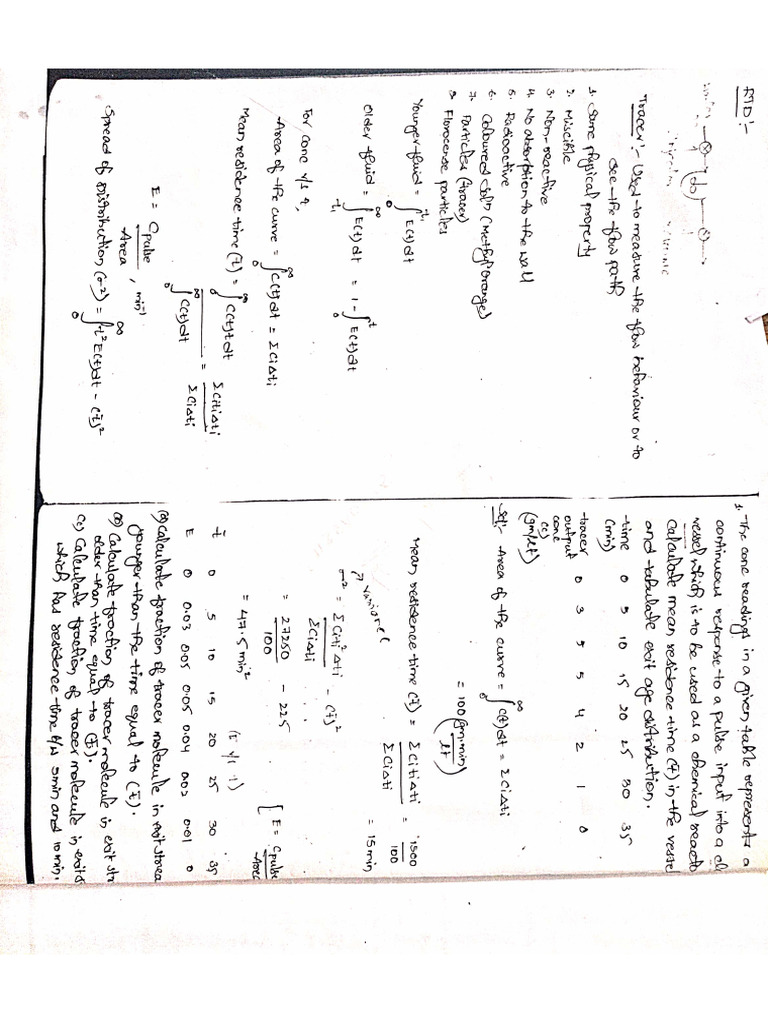 RTD:-
Tracer:- Used to measure the flow behaviour or to
see the flow path
1. Same physical property
2. Miscible
3. Non-reactive
4. No absorption to the wall
5. Radioactive
6. Coloured soln (Methyl Orange)
7. Particles (tracer)
8. Florocense particles
Younger fluid = ∫₀^t₁ E(t)dt
Older fluid = ∫_t₁^∞ E(t)dt = 1 - ∫₀^t E(t)dt
For conc v/s t,
Area of the curve = ∫₀^∞ C(t)dt = ΣCiΔti
Mean residence time (t̄) = ∫₀^∞ C(t)t dt / ∫₀^∞ C(t)dt = ΣCitiΔti / ΣCiΔti
E = Cpulse / Area , min⁻¹
Spread of Distribution (σ²) = ∫₀^∞ t²E(t)dt - (t̄)²
1. The conc readings in a given table represents a
continuous response to a pulse input into a cl
vessel which is to be used as a chemical reacto
calculate mean residence time (t̄) in the vessel
and tabulate exit age distribution.
time (min) 0 5 10 15 20 25 30 35
tracer output conc (c) (gm/lt) 0 3 5 5 4 2 1 0
Sol:- Area of the curve = ∫₀^∞ C(t)dt = ΣCiΔti
= 100 (gm.min/lt)
Mean residence time (t̄) = ΣCitiΔti / ΣCiΔti = 1500/100 = 15 min
↗ variance
σ² = ΣCiti²Δti / ΣCiΔti - (t̄)²
= 27250/100 - 225
= 47.5 min²
(E v/s t) [E = Cpulse/Area
t 0 5 10 15 20 25 30 35
E 0 0.03 0.05 0.05 0.04 0.02 0.01 0
(a) Calculate fraction of tracer molecule in exit strea
younger than the time equal to (t̄).
(b) Calculate fraction of tracer molecule in exit str
older than time equal to (t̄).
(c) Calculate fraction of tracer molecule in exit s
which has residence time b/w 5min and 10 min.